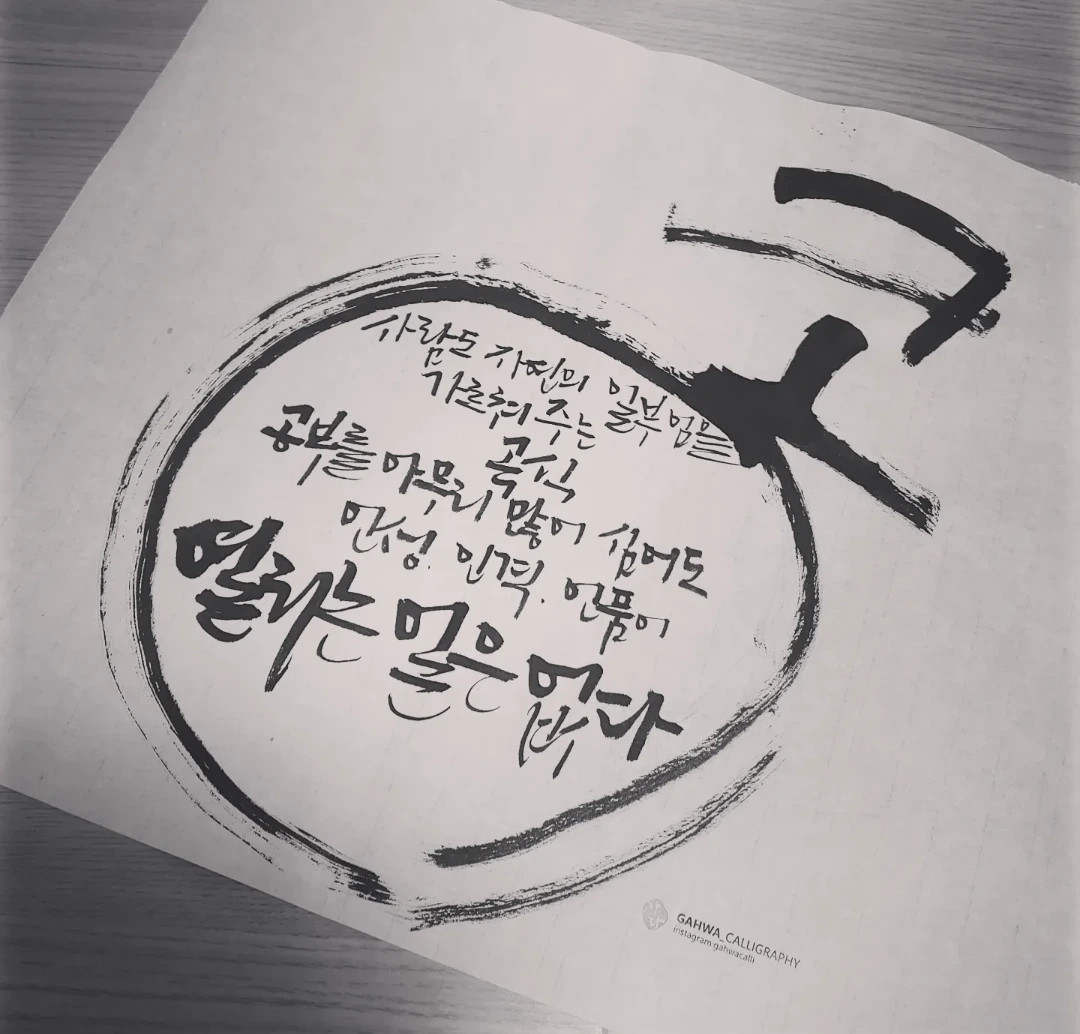 콩
사람도 자연의 일부임을
가르쳐 주는
곡식
공부를 아무리 많이 심어도
인성. 인격. 인품이
열리는 일은 없다
GAHWA_CALLIGRAPHY
instagram.gahwacalli